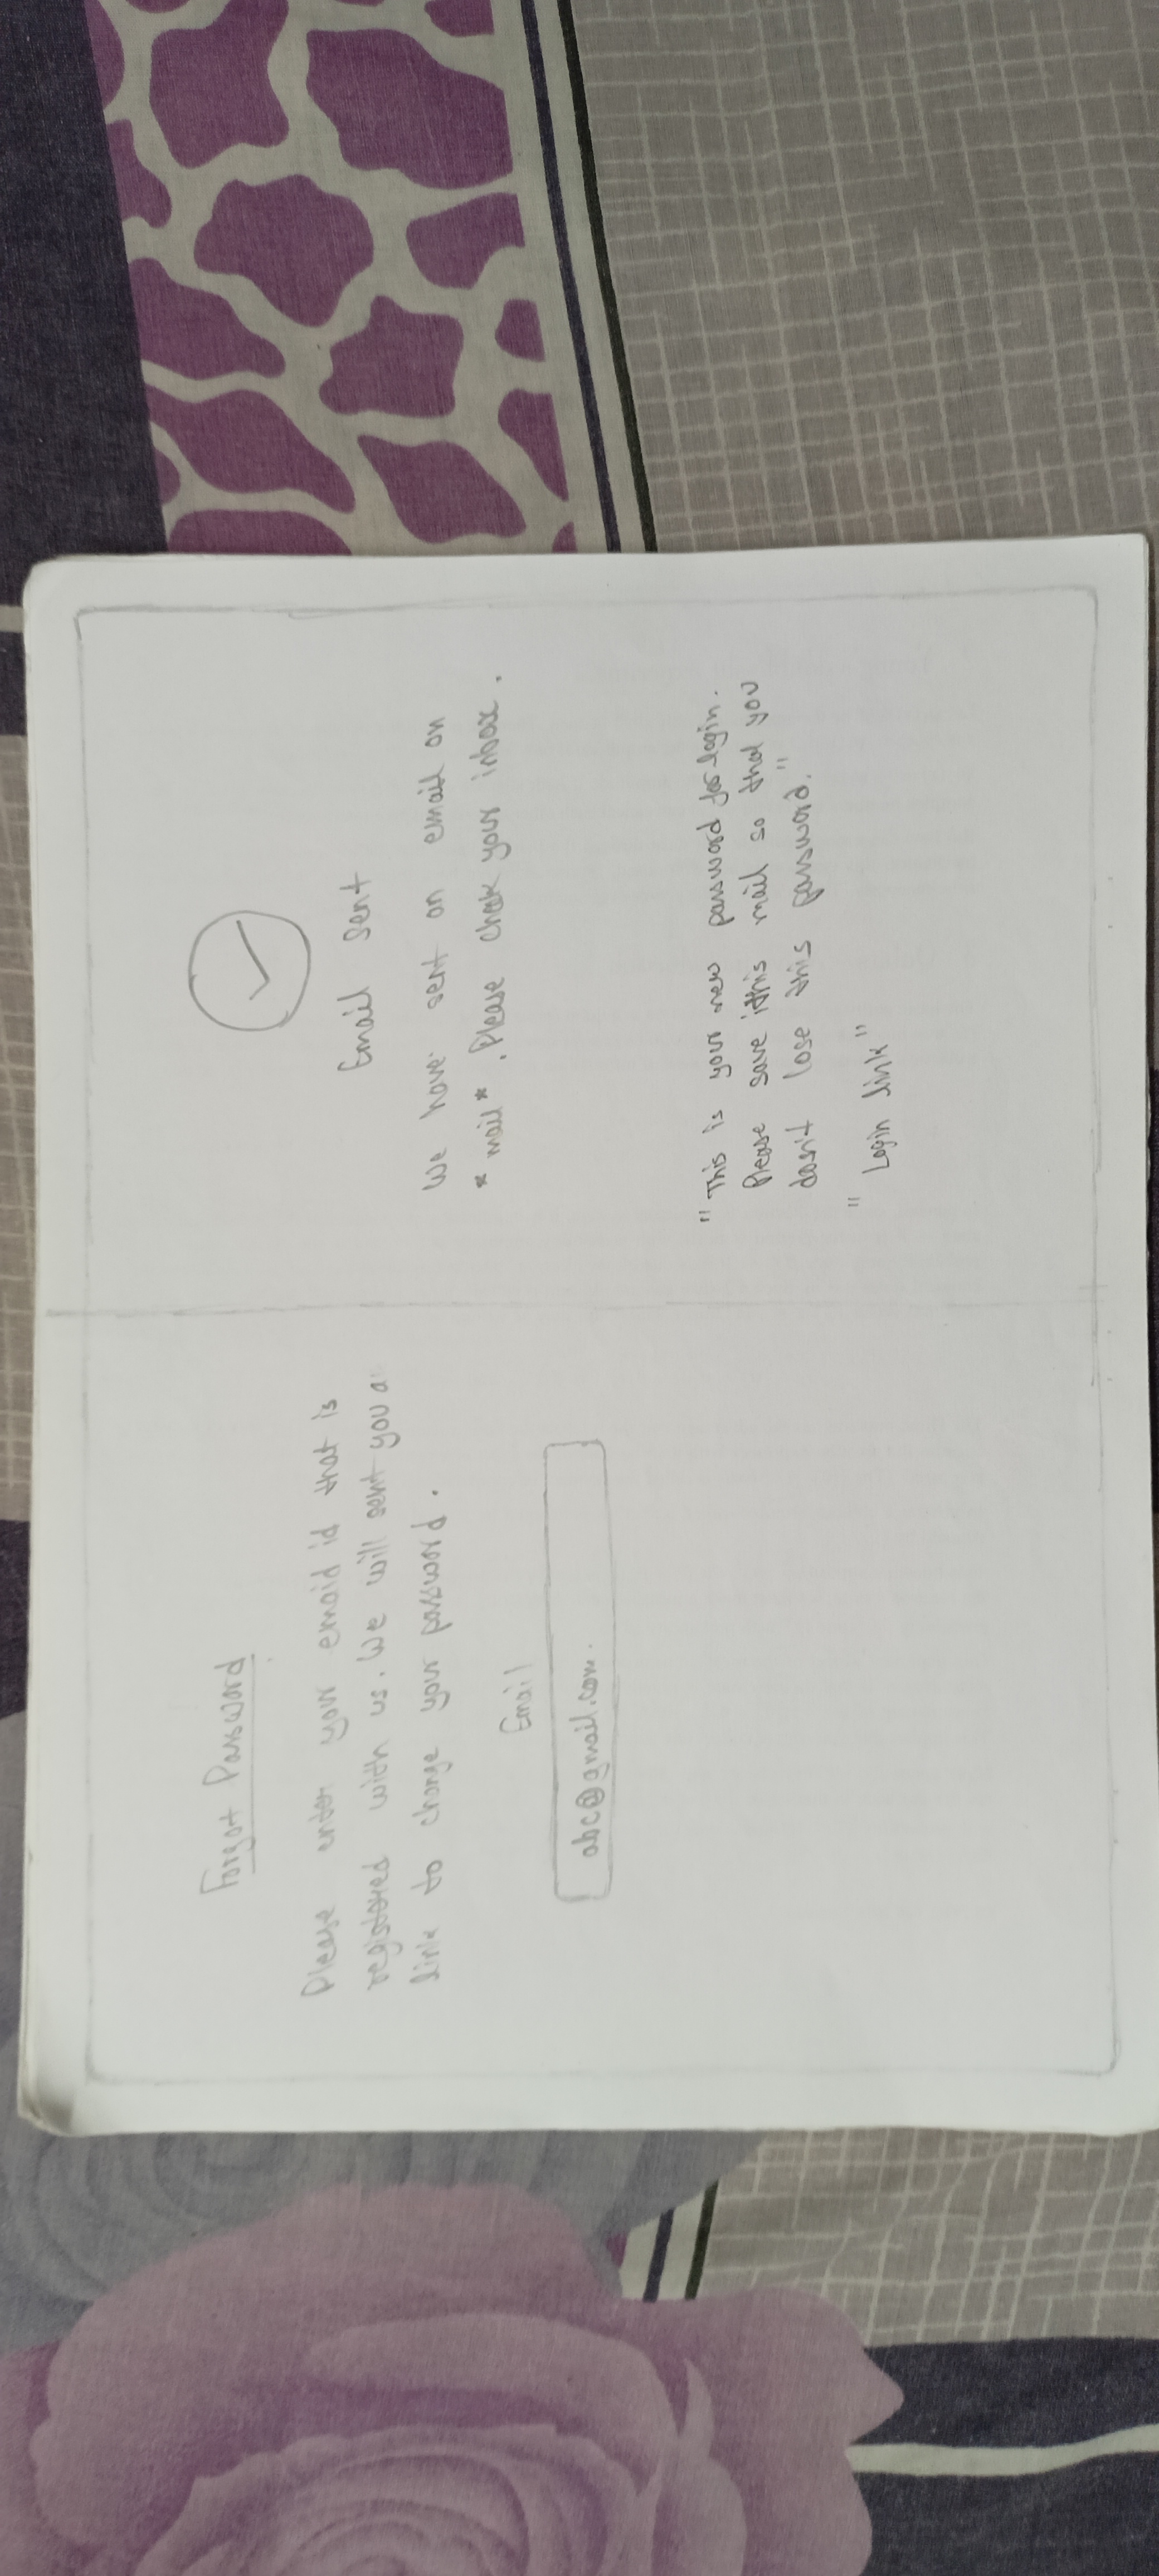 Forgot Password
Please enter your emaid id that is
registered with us. We will sent you a
link to change your password.
Email
abc@gmail.com.
Email sent
We have sent an email on
* mail* . Please check your inbox.
" This is your new password for login.
Please save this mail so that you
don't lose this password."
" Login link"